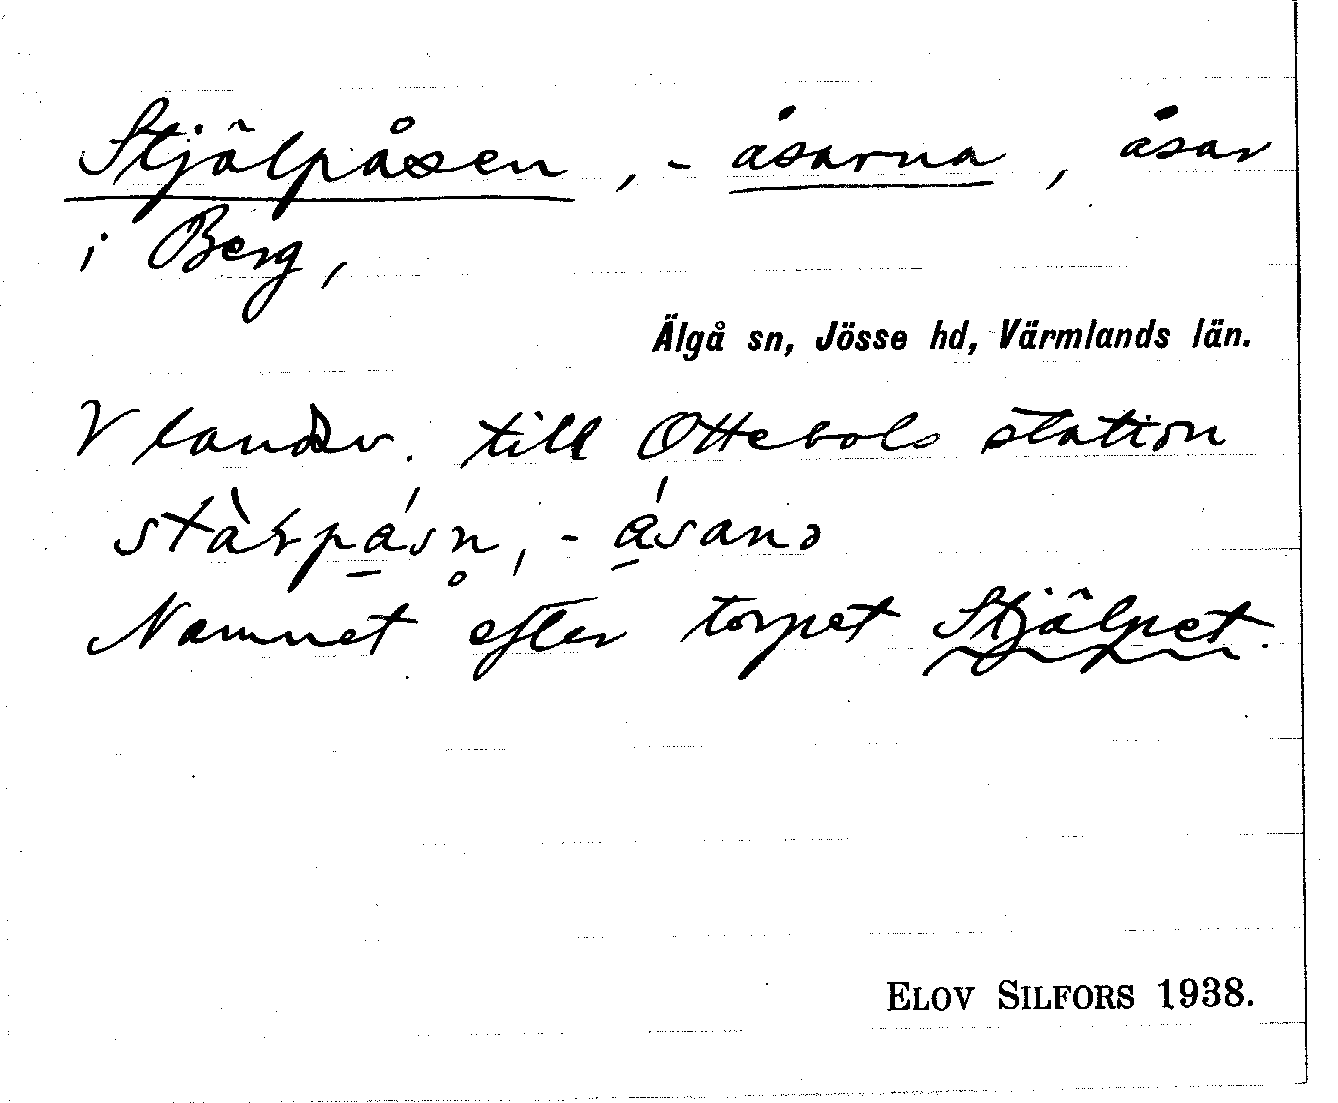 Stjälpåsen, -åsarna, åsar
i Berg,
Älgå sn, Jösse hd, Värmlands län.
V landsv. till Ottebols station
Namnet efter torpet Stjälpet.
ELOV SILFORS 1938.